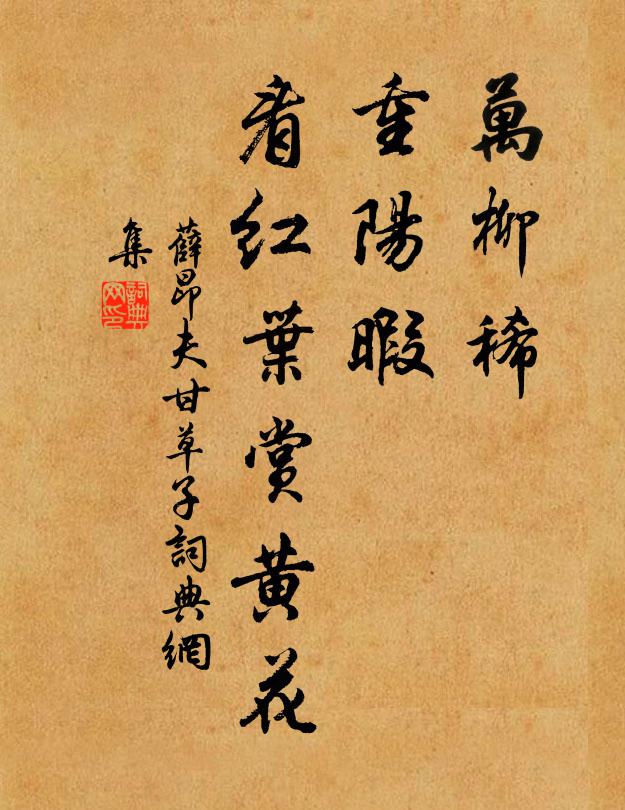 萬柳稀
重陽暇
看紅葉賞黃花
薛昂夫甘草子詞典網
集
詞典
网印